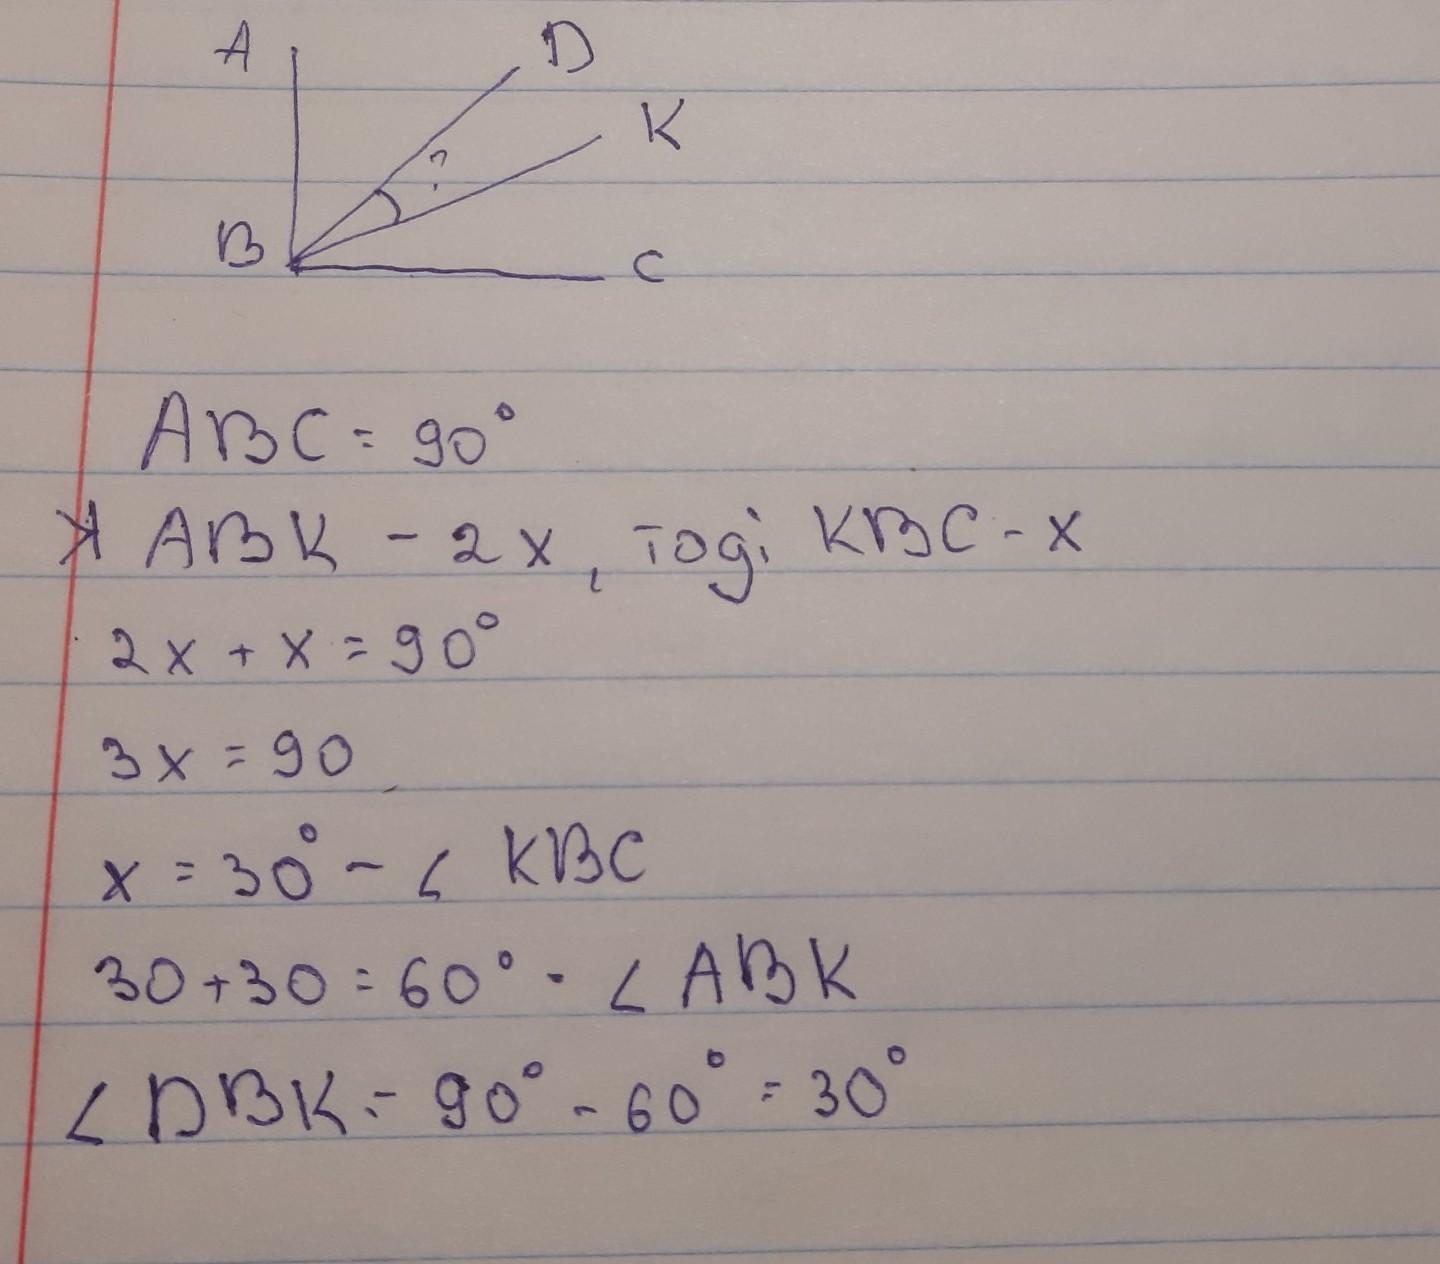 A
D
K
?
B
C
ABC = 90°
ABK - 2x, тоді KBC - x
2x + x = 90°
3x = 90
x = 30° - ∠ KBC
30+30 = 60° - ∠ ABK
∠ DBK = 90° - 60° = 30°